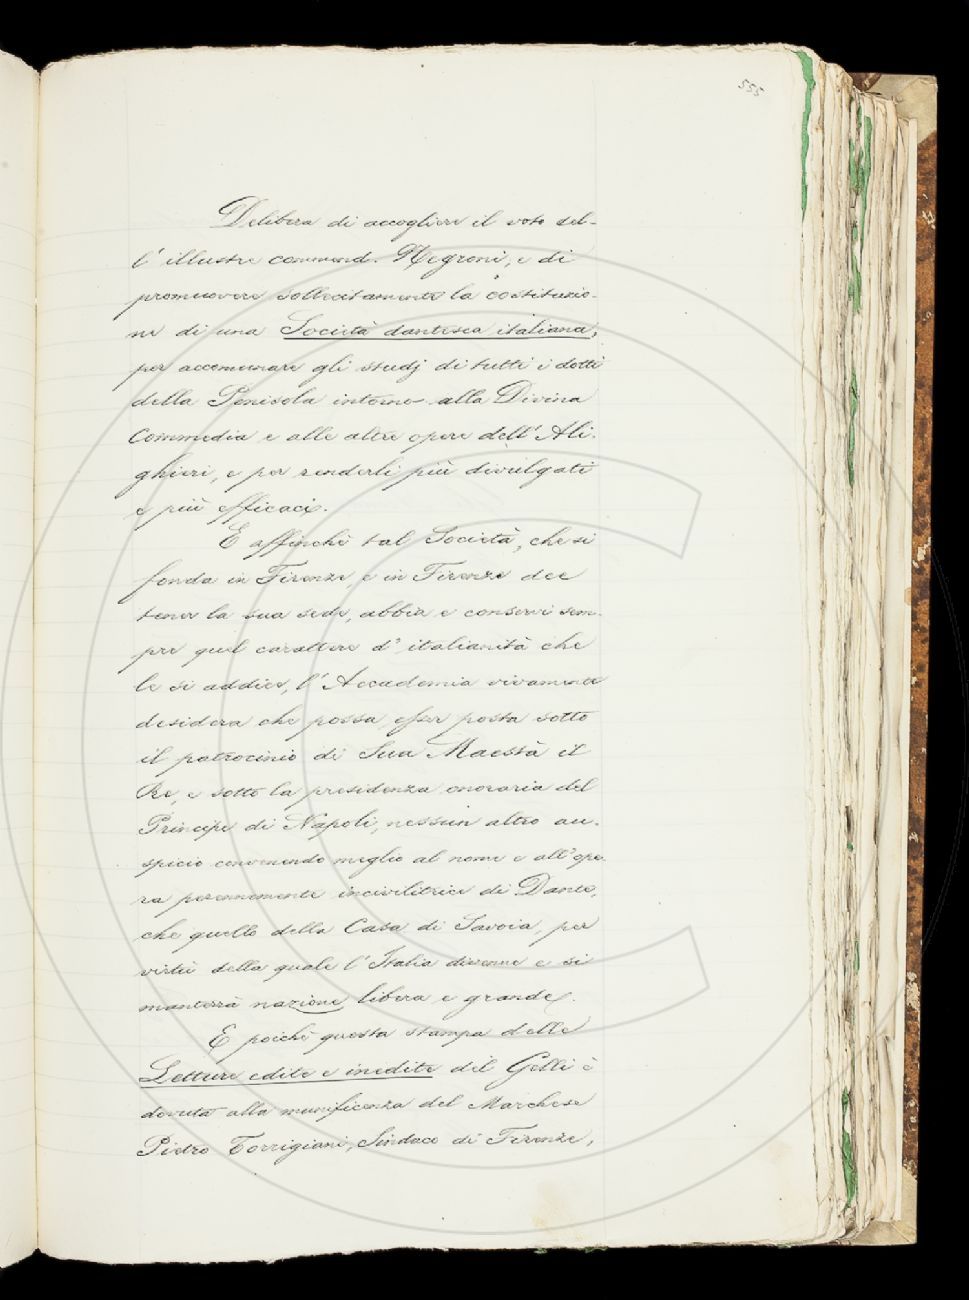 555
Delibera di accogliere il voto del-
l' illustre commend. Negroni, e di
promuovere sollecitamente la costituzio-
ne di una Società dantesca italiana,
per accomunare gli studj di tutti i dotti
della Penisola intorno alla Divina
Commedia e alle altre opere dell' Ali-
ghieri, e per renderli più divulgati
e più efficaci.
E affinchè tal Società, che si
fonda in Firenze, e in Firenze dee
tener la sua sede, abbia e conservi sem-
pre quel carattere d' italianità che
le si addice, l' Accademia vivamente
desidera che possa esser posta sotto
il patrocinio di Sua Maestà il
Re, e sotto la presidenza onoraria del
Principe di Napoli, nessun altro au-
spicio convenendo meglio al nome e all' ope-
ra perennemente incivilitrice di Dante,
che quello della Casa di Savoia, per
virtù della quale l' Italia divenne e si
manterrà nazione libera e grande.
E poichè questa stampa delle
Letture edite e inedite del Gelli è
dovuta alla munificenza del Marchese
Pietro Torrigiani, Sindaco di Firenze,